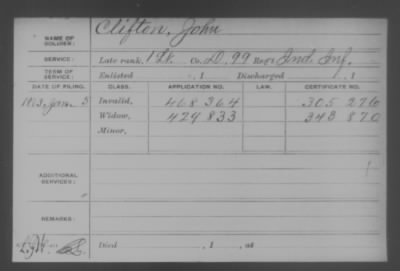 NAME OF SOLDIER: Clifton, John
SERVICE: Late rank, 1 Lt. Co. D, 99 Reg't Ind. Inf.
TERM OF SERVICE: Enlisted , 1 Discharged , 1
DATE OF FILING. CLASS. APPLICATION NO. LAW. CERTIFICATE NO.
Jan. 5 Invalid, 468 364 305 276
Widow, 424 833 343 870
Minor,
ADDITIONAL SERVICES:
REMARKS:
Died , 1 , at